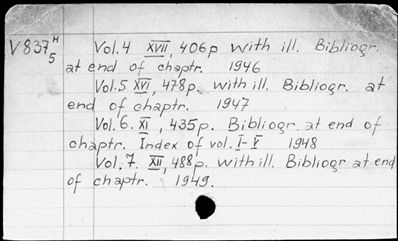 V837 H 5 Vol.4 XVII, 406p with ill. Bibliogr.
at end of chaptr. 1946
Vol.5 XVI, 478p. with ill. Bibliogr. at
end of chaptr. 1947
Vol.6. XI, 435p. Bibliogr. at end of
chaptr. Index of vol. I-V 1948
Vol.7. XII, 488p. with ill. Bibliogr at end
of chaptr. 1949.